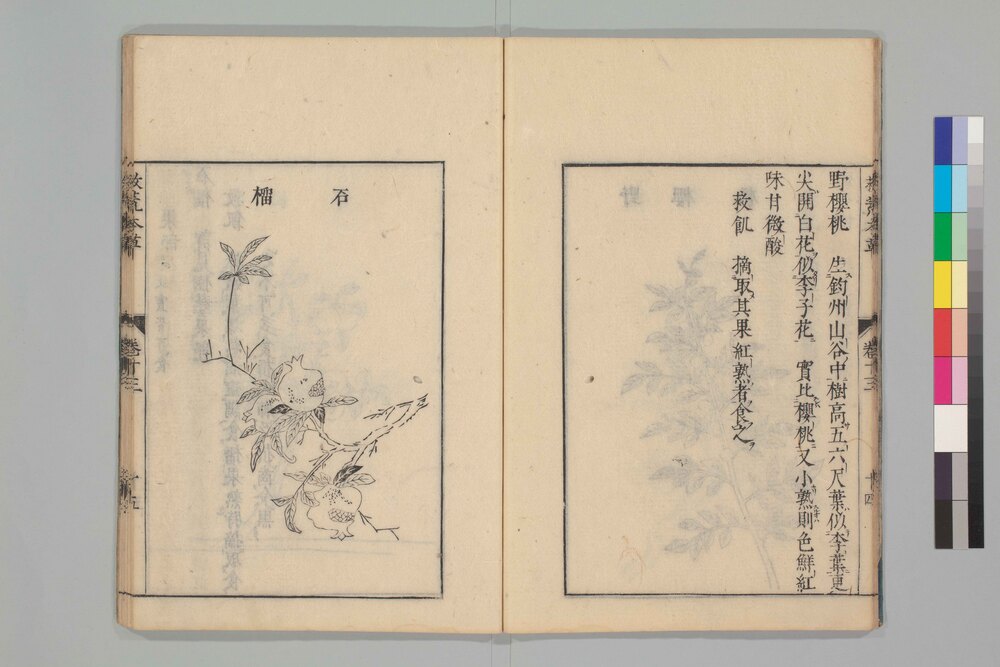 野櫻桃 生鈞州山谷中樹高五六尺葉似李葉更
尖開白花似李子花 實比櫻桃又小熟則色鮮紅
味甘微酸
救飢 摘取其果紅熟者食之
救荒本草
卷十三
十四
石榴
救荒本草
卷十三
十五